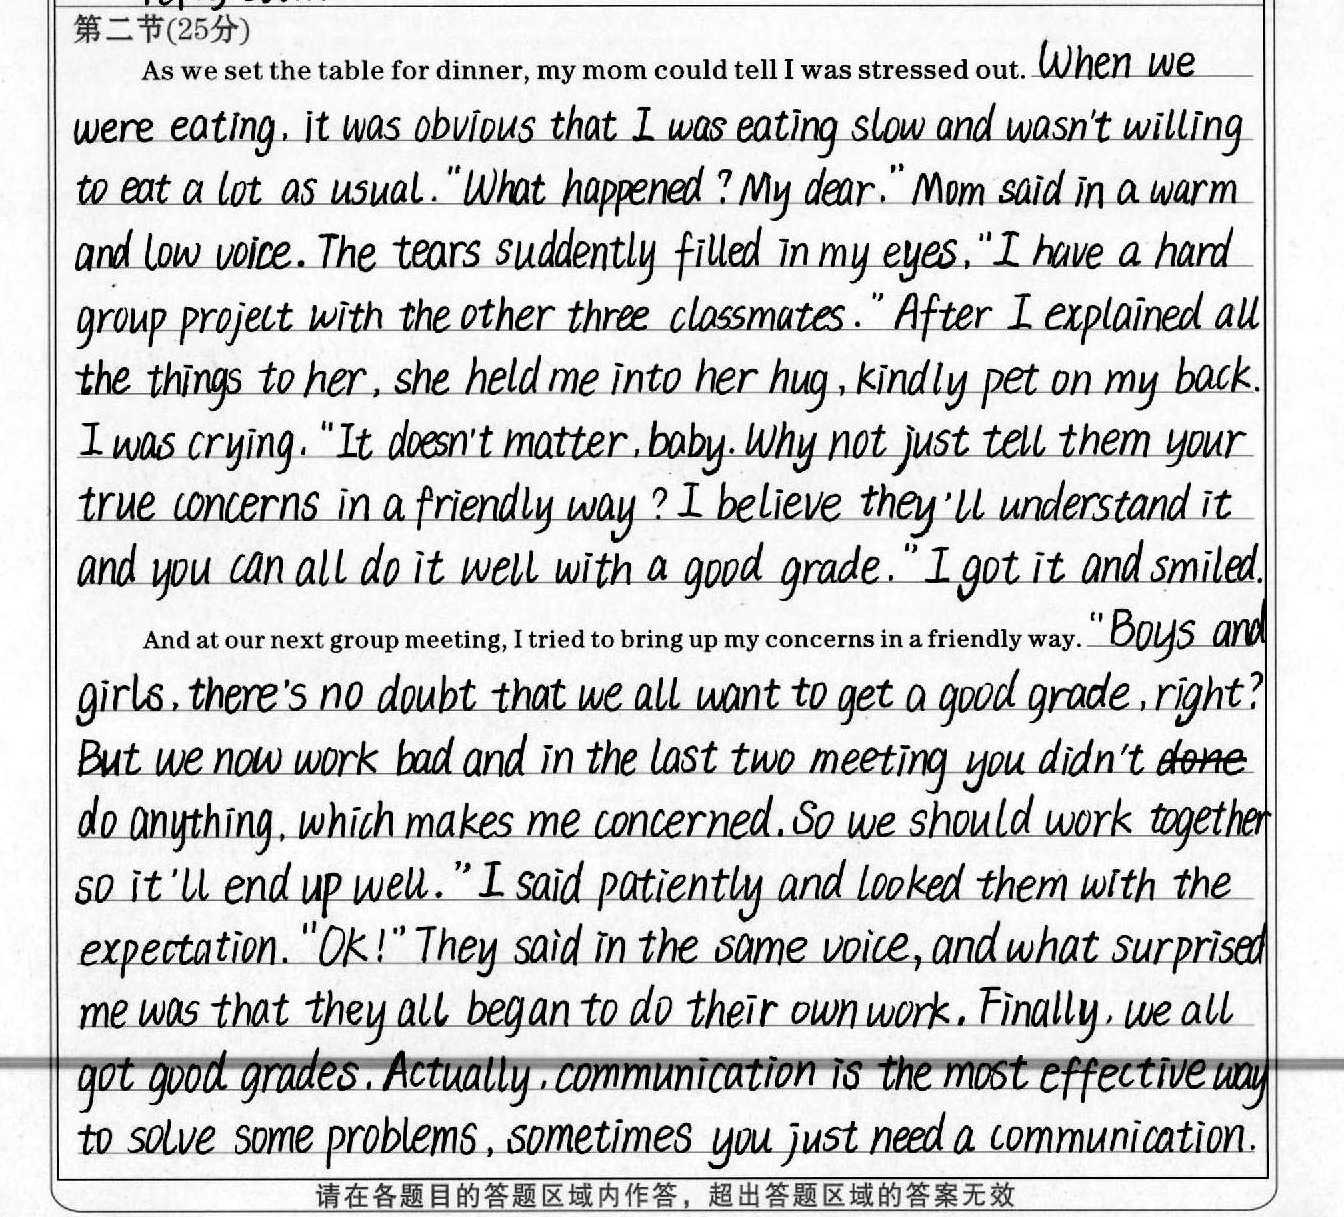 第二节(25分)
As we set the table for dinner, my mom could tell I was stressed out. When we
were eating, it was obvious that I was eating slow and wasn't willing
to eat a lot as usual. "What happened? My dear." Mom said in a warm
and low voice. The tears suddently filled in my eyes, "I have a hard
group project with the other three classmates." After I explained all
the things to her, she held me into her hug, kindly pet on my back.
I was crying. "It doesn't matter, baby. Why not just tell them your
true concerns in a friendly way? I believe they'll understand it
and you can all do it well with a good grade." I got it and smiled.
And at our next group meeting, I tried to bring up my concerns in a friendly way. "Boys and
girls, there's no doubt that we all want to get a good grade, right?
But we now work bad and in the last two meeting you didn't done
do anything, which makes me concerned. So we should work together
so it'll end up well." I said patiently and looked them with the
expectation. "OK!" They said in the same voice, and what surprised
me was that they all began to do their own work. Finally, we all
got good grades. Actually, communication is the most effective way
to solve some problems, sometimes you just need a communication.
请在各题目的答题区域内作答，超出答题区域的答案无效